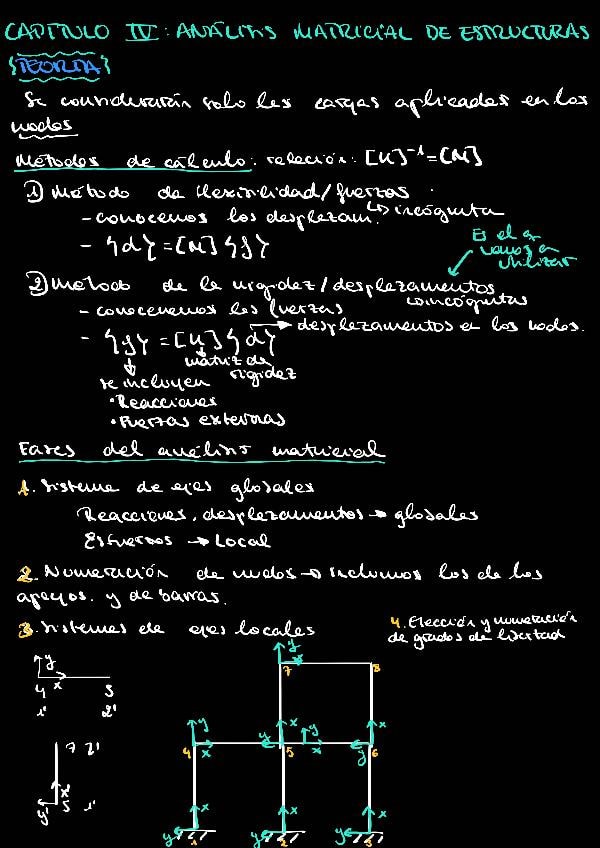 CAPÍTULO IV: ANÁLISIS MATRICIAL DE ESTRUCTURAS
{TEORÍA}
Se considerarán solo les cargas aplicades en los
nodos
Métodos de cálculo: relación: [K]⁻¹=[N]
1) Método de flexibilidad/fuerzas
↳ incógnita
- conocemos los desplezam.
- {d}=[N]{f}
Es el q
vamos a
utilizar
2) Método de la rigidez/desplezamientos
↳ incógnitas
- conoceremos les fuerzas
- {f}=[K]{d} → desplezamientos en los nodos.
matriz de
rigidez
se incluyen
• Reacciones
• Fuerzas externas
Fases del análisis matricial
1. Sistema de ejes globales
Reacciones, desplezamientos → globales
Esfuerzos → Local
2. Numeración de nudos → incluimos los de los
apoyos. y de barras.
3. Sistemas de ejes locales
4. Elección y numeración
de grados de libertad
y
x
4 5
1' 2'
7 2'
x
y 5 1'
y
x
7 8
y x y x
4 x y 5 x y 6
x x x
y 1 y 2 y 3